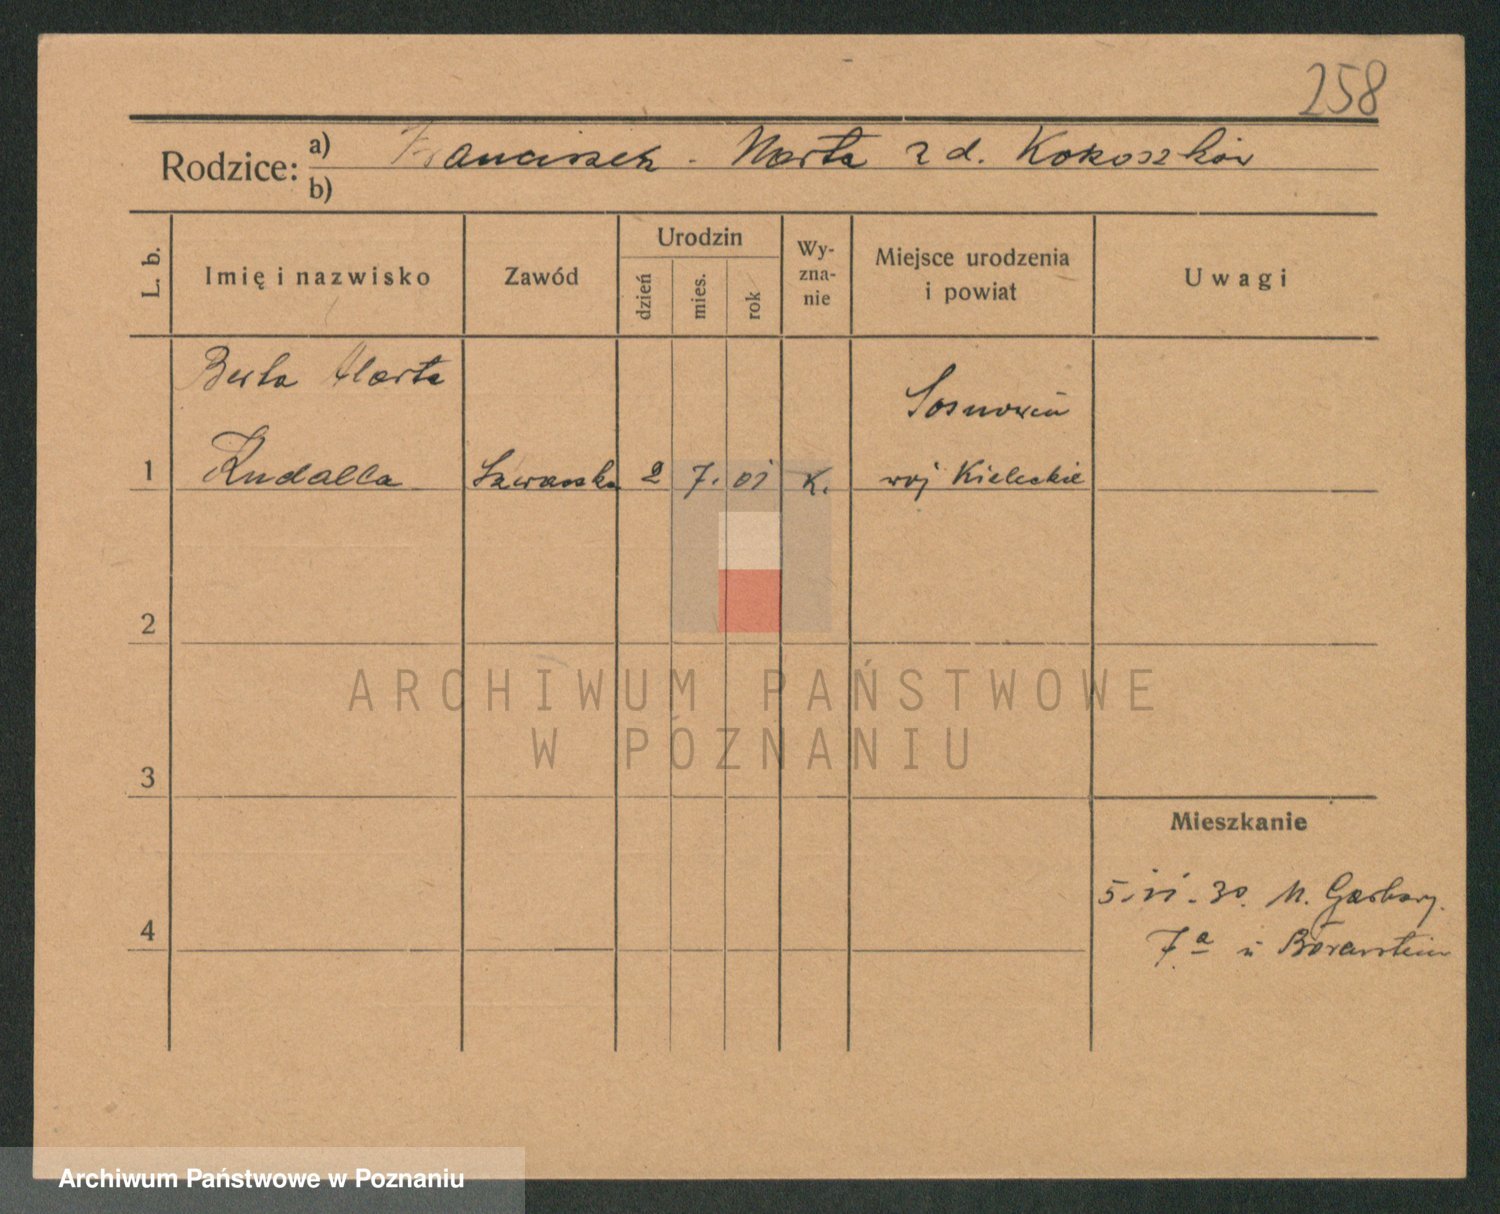 258
Rodzice: a) Franciszek - Marta z d. Kokoszków
b)
L. b.
Imię i nazwisko
Zawód
Urodzin
dzień
mies.
rok
Wy-
zna-
nie
Miejsce urodzenia
i powiat
Uwagi
Berta Marta
Sosnowiec
1 Kudalla Szwaczka 2 7. 01 K. woj Kieleckie
2
ARCHIWUM PAŃSTWOWE
W POZNANIU
3
Mieszkanie
4
5. VI. 30. M. Garbary.
7a u
Archiwum Państwowe w Poznaniu